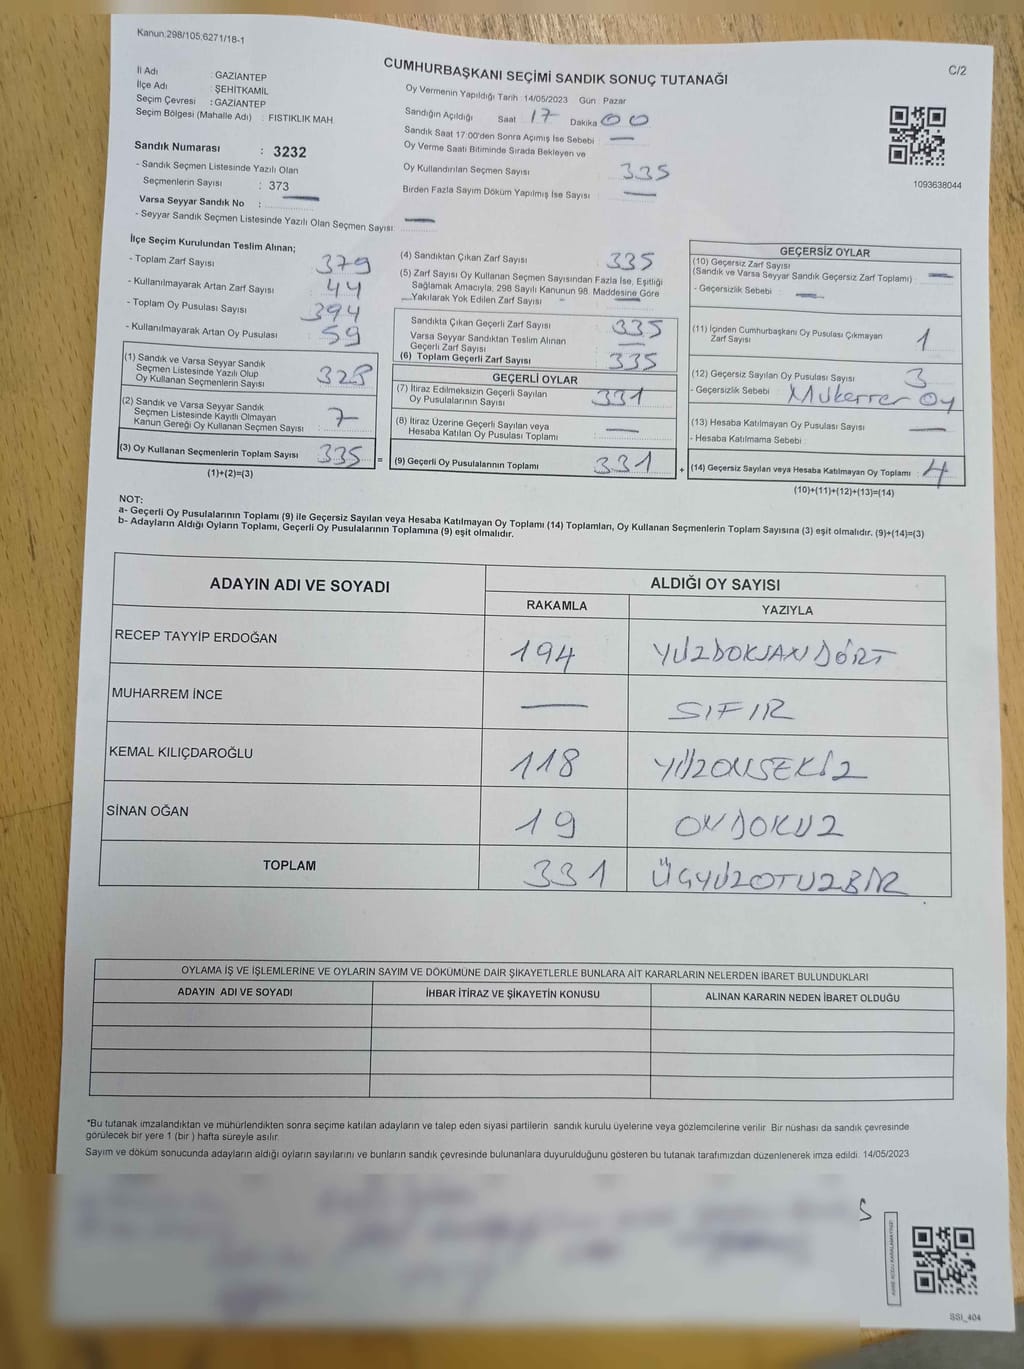 Kanun:298/105,6271/18-1
C/2
CUMHURBAŞKANI SEÇİMİ SANDIK SONUÇ TUTANAĞI
İl Adı : GAZİANTEP
İlçe Adı : ŞEHİTKAMİL
Seçim Çevresi : GAZİANTEP
Seçim Bölgesi (Mahalle Adı) : FISTIKLIK MAH
Sandık Numarası : 3232
- Sandık Seçmen Listesinde Yazılı Olan
Seçmenlerin Sayısı : 373
Varsa Seyyar Sandık No : —
- Seyyar Sandık Seçmen Listesinde Yazılı Olan Seçmen Sayısı: —
Oy Vermenin Yapıldığı Tarih : 14/05/2023 Gün : Pazar
Sandığın Açıldığı Saat : 17 Dakika : 00
Sandık Saat 17:00'den Sonra Açımış İse Sebebi : —
Oy Verme Saati Bitiminde Sırada Bekleyen ve
Oy Kullandırılan Seçmen Sayısı : 335
Birden Fazla Sayım Döküm Yapılmış İse Sayısı : —
1093638044
İlçe Seçim Kurulundan Teslim Alınan;
- Toplam Zarf Sayısı : 379
- Kullanılmayarak Artan Zarf Sayısı : 44
- Toplam Oy Pusulası Sayısı : 394
- Kullanılmayarak Artan Oy Pusulası : 59
(1) Sandık ve Varsa Seyyar Sandık
Seçmen Listesinde Yazılı Olup
Oy Kullanan Seçmenlerin Sayısı : 328
(2) Sandık ve Varsa Seyyar Sandık
Seçmen Listesinde Kayıtlı Olmayan
Kanun Gereği Oy Kullanan Seçmen Sayısı : 7
(3) Oy Kullanan Seçmenlerin Toplam Sayısı : 335
(1)+(2)=(3)
=
(4) Sandıktan Çıkan Zarf Sayısı : 335
(5) Zarf Sayısı Oy Kullanan Seçmen Sayısından Fazla İse, Eşitliği
Sağlamak Amacıyla, 298 Sayılı Kanunun 98. Maddesine Göre
Yakılarak Yok Edilen Zarf Sayısı : —
Sandıkta Çıkan Geçerli Zarf Sayısı : 335
Varsa Seyyar Sandıktan Teslim Alınan
Geçerli Zarf Sayısı : —
(6) Toplam Geçerli Zarf Sayısı : 335
GEÇERLİ OYLAR
(7) İtiraz Edilmeksizin Geçerli Sayılan
Oy Pusulalarının Sayısı : 331
(8) İtiraz Üzerine Geçerli Sayılan veya
Hesaba Katılan Oy Pusulası Toplamı : —
(9) Geçerli Oy Pusulalarının Toplamı : 331
+
GEÇERSİZ OYLAR
(10) Geçersiz Zarf Sayısı
(Sandık ve Varsa Seyyar Sandık Geçersiz Zarf Toplamı) : —
- Geçersizlik Sebebi : —
(11) İçinden Cumhurbaşkanı Oy Pusulası Çıkmayan
Zarf Sayısı : 1
(12) Geçersiz Sayılan Oy Pusulası Sayısı : 3
- Geçersizlik Sebebi : Mükerrer oy
(13) Hesaba Katılmayan Oy Pusulası Sayısı : —
- Hesaba Katılmama Sebebi :
(14) Geçersiz Sayılan veya Hesaba Katılmayan Oy Toplamı : 4
(10)+(11)+(12)+(13)=(14)
NOT:
a- Geçerli Oy Pusulalarının Toplamı (9) ile Geçersiz Sayılan veya Hesaba Katılmayan Oy Toplamı (14) Toplamları, Oy Kullanan Seçmenlerin Toplam Sayısına (3) eşit olmalıdır. (9)+(14)=(3)
b- Adayların Aldığı Oyların Toplamı, Geçerli Oy Pusulalarının Toplamına (9) eşit olmalıdır.
ADAYIN ADI VE SOYADI ALDIĞI OY SAYISI
RAKAMLA YAZIYLA
RECEP TAYYİP ERDOĞAN 194 YÜZDOKSANDÖRT
MUHARREM İNCE — SIFIR
KEMAL KILIÇDAROĞLU 118 YÜZONSEKİZ
SİNAN OĞAN 19 ONDOKUZ
TOPLAM 331 ÜÇYÜZOTUZBİR
OYLAMA İŞ VE İŞLEMLERİNE VE OYLARIN SAYIM VE DÖKÜMÜNE DAİR ŞİKAYETLERLE BUNLARA AİT KARARLARIN NELERDEN İBARET BULUNDUKLARI
ADAYIN ADI VE SOYADI İHBAR İTİRAZ VE ŞİKAYETİN KONUSU ALINAN KARARIN NEDEN İBARET OLDUĞU
*Bu tutanak imzalandıktan ve mühürlendikten sonra seçime katılan adayların ve talep eden siyasi partilerin sandık kurulu üyelerine veya gözlemcilerine verilir Bir nüshası da sandık çevresinde
görülecek bir yere 1 (bir ) hafta süreyle asılır.
Sayım ve döküm sonucunda adayların aldığı oyların sayılarını ve bunların sandık çevresinde bulunanlara duyurulduğunu gösteren bu tutanak tarafımızdan düzenlenerek imza edildi. 14/05/2023
SSI_404